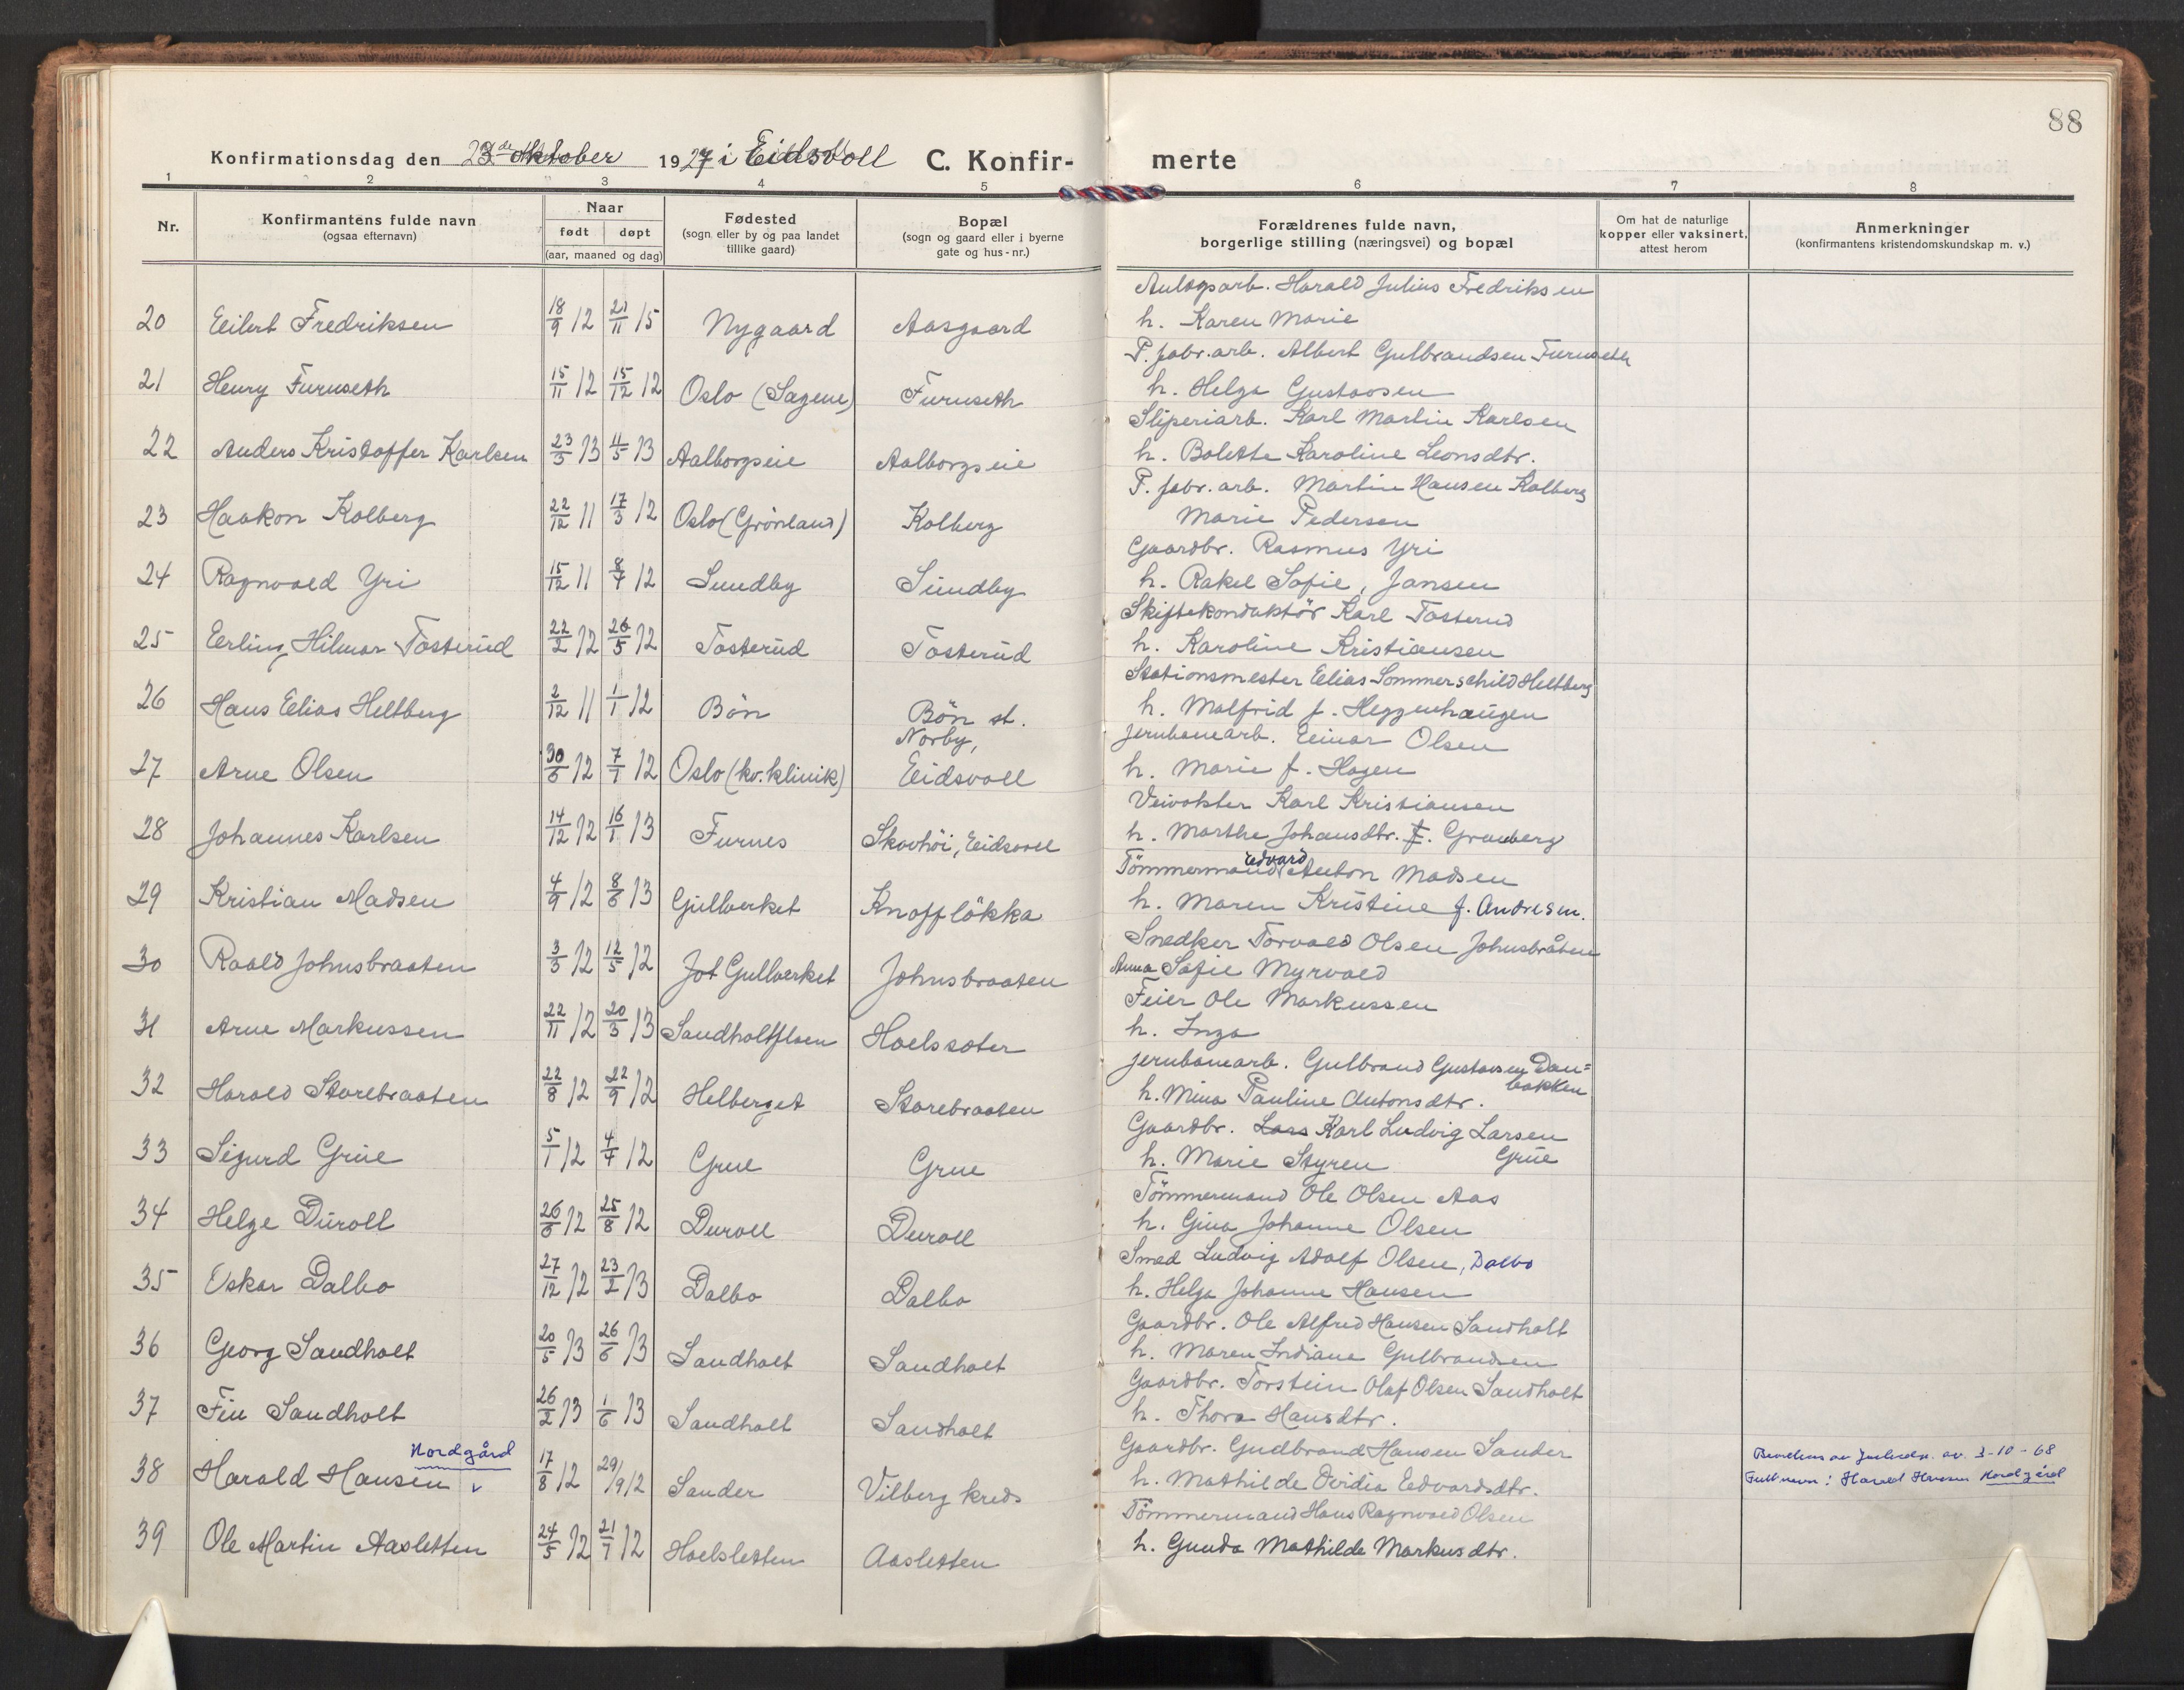 88
Konfirmationsdag den 23de Oktober 1927 i Eidsvoll C. Konfir- merte
1 2 3 4 5 6 7 8
Nr.
Konfirmantens fulde navn
(ogsaa efternavn)
Naar
født døpt
(aar, maaned og dag)
Fødested
(sogn eller by og paa landet
tillike gaard)
Bopæl
(sogn og gaard eller i byerne
gate og hus-nr.)
Forældrenes fulde navn,
borgerlige stilling (næringsvei) og bopæl
Om hat de naturlige
kopper eller vaksinert,
attest herom
Anmerkninger
(konfirmantens kristendomskundskap m. v.)
Anlægsarb. Harald Julius Fredriksen
20 Eilert Fredriksen 18/9 12 21/11 15 Nygaard Aasgaard h. Karen Marie
P. fabr. arb. Albert Gulbrandsen Furuseth
21 Henry Furuseth 15/11 12 15/12 12 Oslo (Sagene) Furuseth h. Helga Gustavsen
Sliperiarb. Karl Martin Karlsen
22 Anders Kristoffer Karlsen 23/3 13 11/5 13 Aalborgseie Aalborgseie h. Bolette Karoline Leonsdtr.
P. fabr. arb. Martin Hansen Kolberg
23 Haakon Kolberg 22/12 11 17/3 12 Oslo (Grønland) Kolberg Marie Pedersen
Gaardbr. Rasmus Yri
24 Ragnvald Yri 15/12 11 8/4 12 Sundby Sundby h. Rakel Sofie, Jansen
Skiftekonduktör Karl Tosterud
25 Erling Hilmar Tosterud 22/2 12 26/5 12 Tosterud Tosterud h. Karoline Kristiansen
Stationsmester Elias Sommerschild Heltberg
26 Hans Elias Heltberg 2/12 11 1/1 12 Bön Bön st. h. Malfrid f. Heggenhaugen
Norby, Jernbanearb. Einar Olsen
27 Arne Olsen 30/6 12 7/7 12 Oslo (kv. klinik) Eidsvoll h. Marie f. Hagen
Veivokter Karl Kristiansen
28 Johannes Karlsen 14/12 12 16/1 13 Furnes Skovhöi, Eidsvoll h. Marthe Johansdtr. f. Granberg
Tömmermand Edvard Anton Madsen
29 Kristian Madsen 4/9 12 8/6 13 Gullverket Knoffløkka h. Maren Kristine f. Andresen.
Snedker Torvald Olsen Johnsbråten
30 Roald Johnsbraaten 3/3 12 12/5 12 Jøt Gullverket Johnsbraaten Anna Sofie Myrvold
Feier Ole Markussen
31 Arne Markussen 22/11 12 20/3 13 Sandholtfloen Hoelssæter h. Inga
Jernbanearb. Gulbrand Gustavsen Dan=
bakken
32 Harald Storebraaten 22/8 12 22/9 12 Helberget Storebraaten h. Mina Pauline Antonsdtr.
Gaardbr. Lars Karl Ludvig Larsen
Grue
33 Sigurd Grue 5/1 12 4/4 12 Grue Grue h. Marie Styren
Tömmermand Ole Olsen Aas
34 Helge Duroll 26/6 12 25/8 12 Duroll Duroll h. Gina Johanne Olsen
Smed Ludvig Adolf Olsen, Dalbo
35 Oskar Dalbo 27/12 12 23/2 13 Dalbo Dalbo h. Helga Johanne Hansen
Gaardbr. Ole Alfred Hansen Sandholt
36 Georg Sandholt 20/5 13 26/6 13 Sandholt Sandholt h. Maren Indiane Gulbrandsen
Gaardbr. Torstein Olaf Olsen Sandholt
37 Fin Sandholt 26/2 13 1/6 13 Sandholt Sandholt h. Thora Hansdtr.
Nordgård Gaardbr. Gudbrand Hansen Sander
38 Harald Hansen 17/8 12 29/9 12 Sander Vilberg kreds h. Mathilde Ovidia Edvardsdtr.
av 3-10-68
Fullt navn: Harald Hansen Nordgård
Tömmermand Hans Ragnvald Olsen
39 Ole Martin Aasletten 24/5 12 21/7 12 Hoelsletten Aasletten h. Gunda Mathilde Markusdtr.